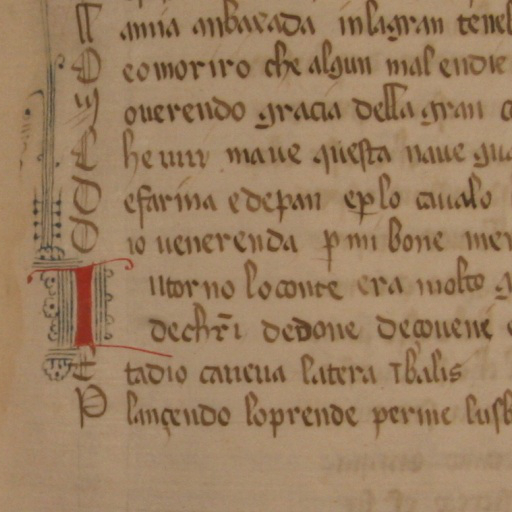 annia anbaxada inlagran teneb
D eo moriro che alchun mal endie
M overendo gracia della gran c
C he vuu mave questa nave gua
E farina e depan eplo cavalo
D io venerenda p mi bone mer
I ntorno loconte era molto g
dechrĩ dedone deçovene e
E tadio caneva latera ībalis
P lançendo loprende perme lusb